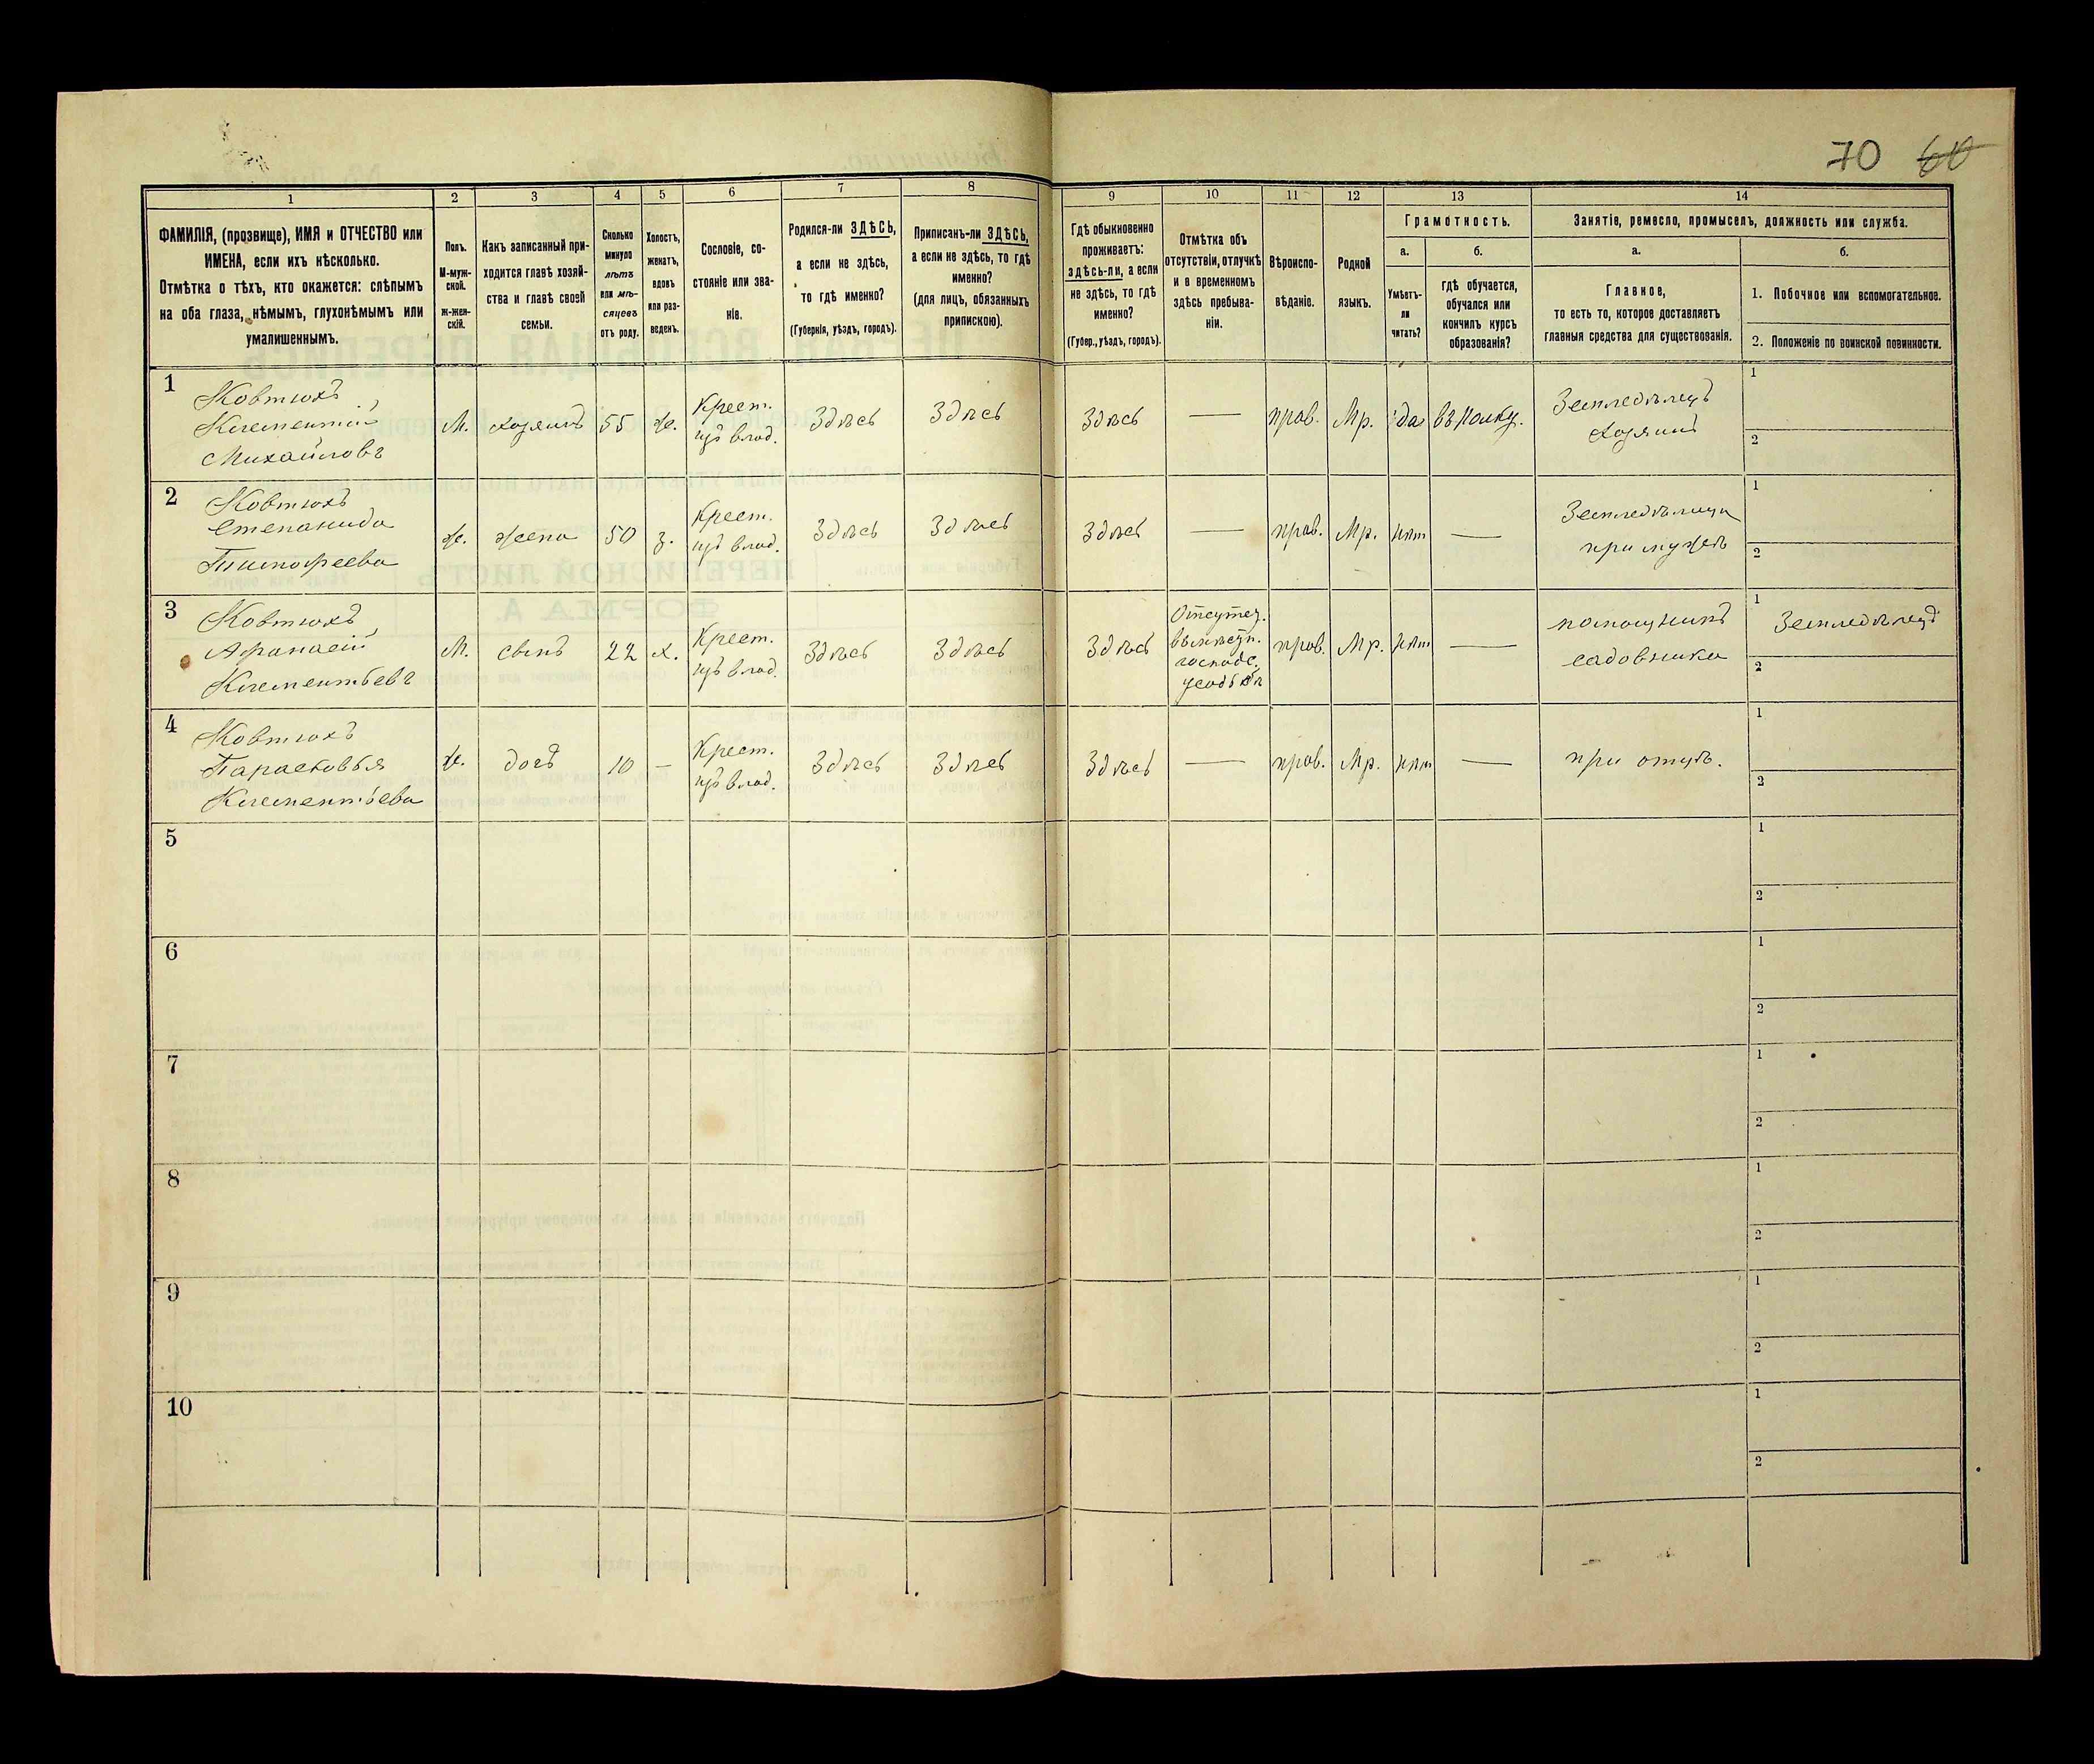 70 60
1
2
3
4
5
6
7
8
9
10
11
12
13
14
ФАМИЛІЯ, (прозвище), ИМЯ и ОТЧЕСТВО или
ИМЕНА, если ихъ нѣсколько.
Отмѣтка о тѣхъ, кто окажется: слѣпымъ
на оба глаза, нѣмымъ, глухонѣмымъ или
умалишеннымъ.
Полъ.
М-муж-
ской.
ж-жен-
скій.
Какъ записанный при-
ходится главѣ хозяй-
ства и главѣ своей
семьи.
Сколько
минуло
лѣтъ
или мѣ-
сяцевъ
отъ роду.
Холостъ,
женатъ,
вдовъ
или раз-
веденъ.
Сословіе, со-
стояніе или зва-
ніе.
Родился-ли ЗДѢСЬ,
а если не здѣсь,
то гдѣ именно?
(Губернія, уѣздъ, городъ).
Приписанъ-ли ЗДѢСЬ,
а если не здѣсь, то гдѣ
именно?
(для лицъ, обязанныхъ
припискою).
Гдѣ обыкновенно
проживаетъ:
здѣсь-ли, а если
не здѣсь, то гдѣ
именно?
(Губер., уѣздъ, городъ).
Отмѣтка объ
отсутствіи, отлучкѣ
и о временномъ
здѣсь пребыва-
ніи.
Вѣроиспо-
вѣданіе.
Родной
языкъ.
Грамотность.
а.
б.
Умѣетъ-
ли
читать?
гдѣ обучается,
обучался или
кончилъ курсъ
образованія?
Занятіе, ремесло, промыселъ, должность или служба.
а.
б.
Главное,
то есть то, которое доставляетъ
главныя средства для существованія.
1. Побочное или вспомогательное.
2. Положеніе по воинской повинности.
1
Ковтюхъ
Климентій
Михайловъ
М.
хозяинъ
55
ж.
Крест.
изъ влад.
Здѣсь
Здѣсь
Здѣсь
—
прав.
Мр.
да
въ полку.
Земледѣлецъ
хозяинъ
1
2
2
Ковтюхъ
Степанида
Тимофеева
ж.
жена
50
з.
Крест.
изъ влад.
Здѣсь
Здѣсь
Здѣсь
—
прав.
Мр.
нѣт
—
при мужѣ
1
2
3
Ковтюхъ
Афанасій
Климентьевъ
М.
сынъ
22
х.
Крест.
изъ влад.
Здѣсь
Здѣсь
Здѣсь
господс.
усадьбѣ
прав.
Мр.
нѣт
—
помощникъ
садовника
1
Земледѣлецъ
2
4
Ковтюхъ
Парасковья
Климентьева
ж.
дочь
10
—
Крест.
изъ влад.
Здѣсь
Здѣсь
Здѣсь
—
прав.
Мр.
нѣт
—
при отцѣ.
1
2
5
1
2
6
1
2
7
1
2
8
1
2
9
1
2
10
1
2